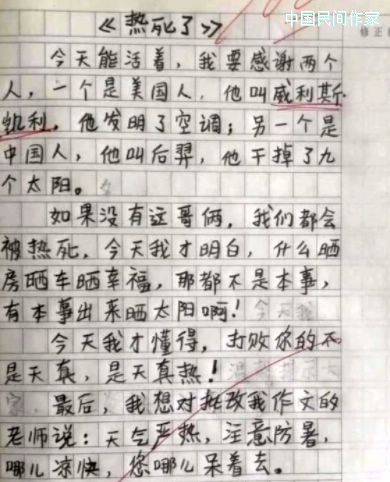 中国民间作家
修正
《热死了》
今天能活着，我要感谢两个
人，一个是美国人，他叫威利斯
凯利，他发明了空调；另一个是
中国人，他叫后羿，他干掉了九
个太阳。
如果没有这哥俩，我们都会
被热死，今天我才明白，什么晒
房晒车晒幸福，那都不是本事，
有本事出来晒太阳啊！
今天我才懂得，打败你的不
是天真，是天真热！
最后，我想对批改我作文的
老师说：天气严热，注意防暑，
哪儿凉快，您哪儿呆着去。